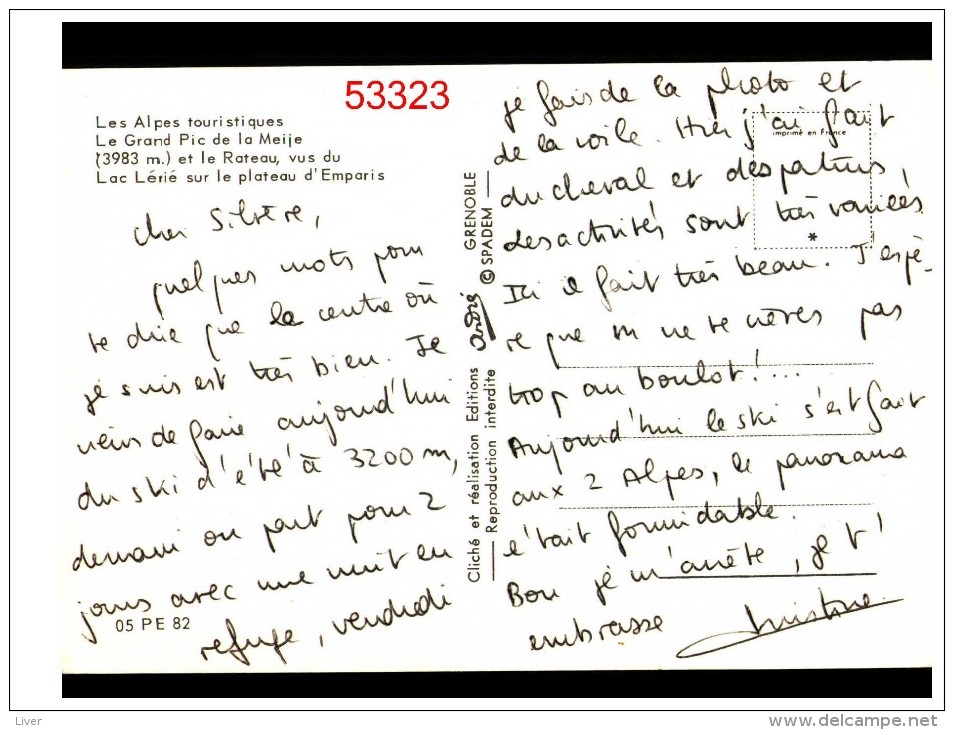 53323
Les Alpes touristiques
Le Grand Pic de la Meije
(3983 m.) et le Rateau, vus du
Lac Lérié sur le plateau d'Emparis
cher Silvère,
quelques mots pour
te dire que le centre où
je suis est très bien. Je
viens de faire aujourd'hui
du ski d'été à 3200 m,
demain on part pour 2
jours avec une nuit en
refuge, vendredi
05 PE 82
Cliché et réalisation Editions André GRENOBLE
Reproduction interdite © SPADEM
imprimé en France
*
je fais de la photo et
de la voile. Hier j'ai fait
du cheval et des patins,
des activités sont très variées
Ici il fait très beau. J'espè-
re que tu ne te pas
trop au boulot!...
Aujourd'hui le ski s'est fait
aux 2 Alpes, le panorama
était formidable.
Bon je m'arrête, je t'
embrasse Christine
Liver
delcampe.net